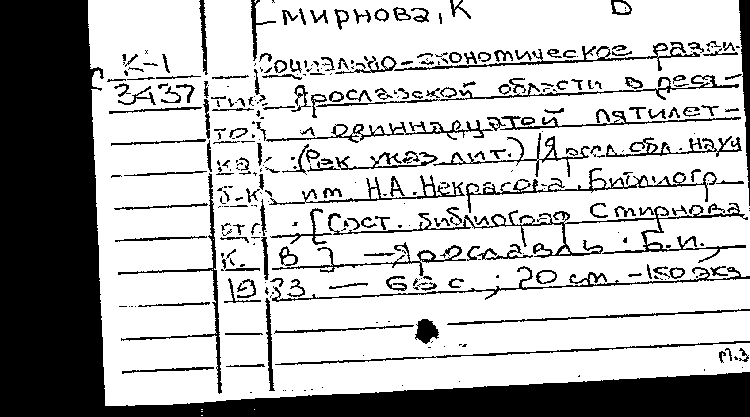 Смирнова, К
К-1 Социально-экономическое разви-
3437 тие Ярославской области в деся-
той и одиннадцатой пятилет-
ках : (Рек указ лит.) / Яросл. обл. науч
б-ка им Н.А. Некрасова. Библиогр.
отд ; [Сост. библиограф Смирнова
К. В ] — Ярославль : Б.и.,
1983. — 66 с. ; 20 см. - 150 экз